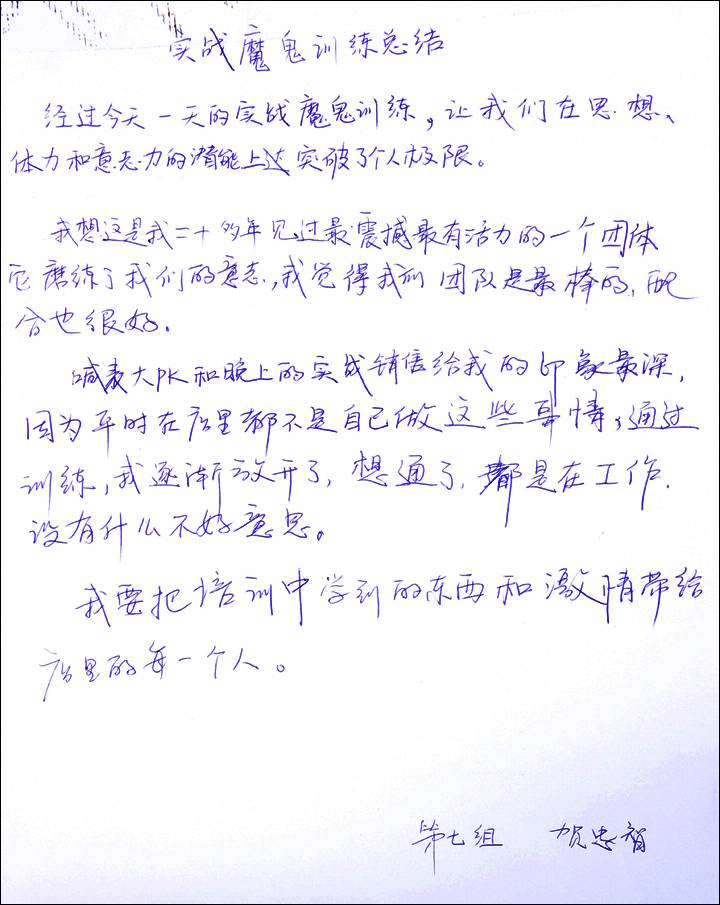 实战魔鬼训练总结
经过今天一天的实战魔鬼训练，让我们在思想、
体力和意志力的潜能上达突破了个人极限。
我想这是我二十多年见过最震撼最有活力的一个团体
它磨练了我们的意志，我觉得我们团队是最棒的，配
合也很好。
喊麦大PK和晚上的实战销售给我的印象最深，
因为平时在店里都不是自己做这些事情，通过
训练，我逐渐放开了，想通了，都是在工作，
没有什么不好意思。
我要把培训中学到的东西和激情带给
店里的每一个人。
第七组 贺忠智